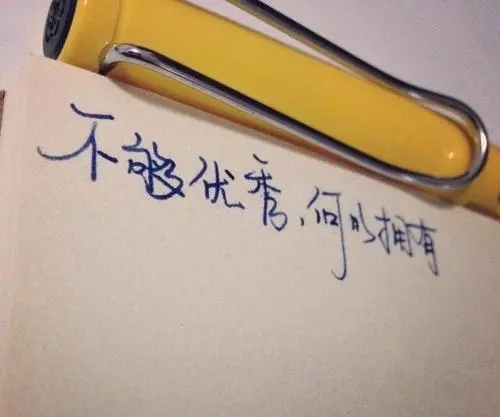 不够优秀，何以拥有